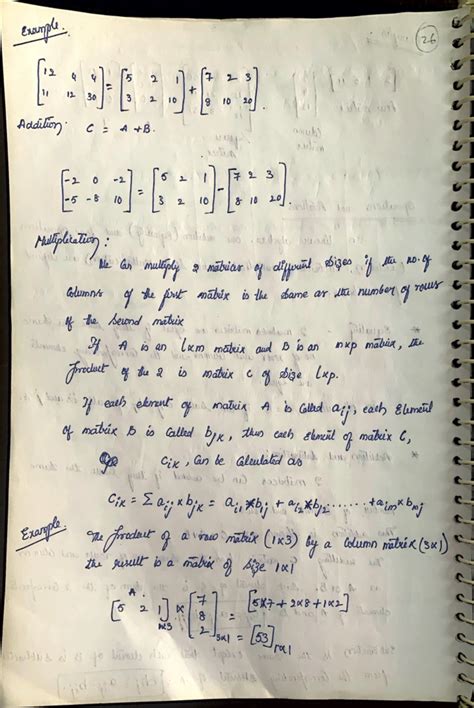 Example.
26
[12 4 4 / 11 12 30] = [5 2 1 / 3 2 10] + [7 2 3 / 8 10 20].
Addition: C = A + B.
[-2 0 -2 / -5 -8 10] = [5 2 1 / 3 2 10] - [7 2 3 / 8 10 20].
Multiplication:
We can multiply 2 matrices of different sizes if the no. of
columns of the first matrix is the same as the number of rows
of the second matrix
If A is an lxm matrix and B is an mxp matrix, the
product of the 2 is matrix C of size lxp.
If each element of matrix A is called aij, each element
of matrix B is called bjk, thus each element of matrix C,
cik, can be calculated as
Cik = Σ aij x bjk = ai1*bj + ai2*bj2 ...... + aim x bmj
Example. The product of a row matrix (1x3) by a column matrix (3x1)
the result is a matrix of size 1x1
A
[5 2 1]1x3 x [7 / 8 / 2]3x1 = [5x7 + 2x8 + 1x2]
= [53]1x1